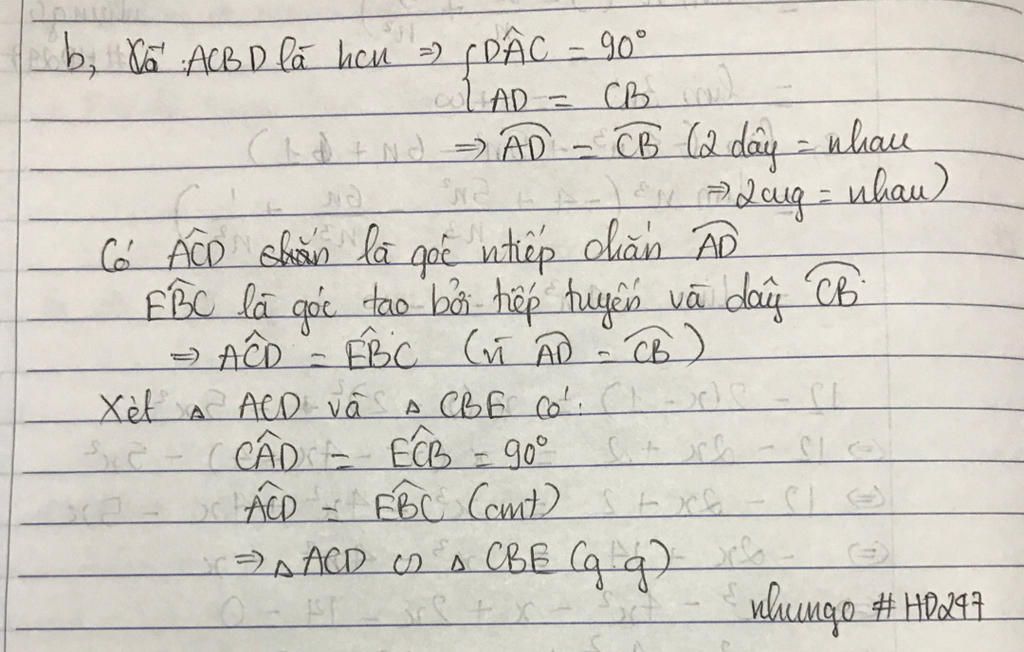 b, Và ACBD là hcn ⇒ { DÂC = 90°
AD = CB
⇒ \overset{⌢}{AD} = \overset{⌢}{CB} (2 dây = nhau
⇒ 2 cug = nhau)
Có AĈD là góc ntiếp chắn \overset{⌢}{AD}
EB̂C là góc tạo bởi tiếp tuyến và dây \overset{⌢}{CB}
⇒ AĈD = EB̂C (vì \overset{⌢}{AD} = \overset{⌢}{CB})
Xét △ ACD và △ CBE có:
CÂD = EĈB = 90°
AĈD = EB̂C (cmt)
⇒ △ ACD ∽ △ CBE (g.g)
nhungo #HD247